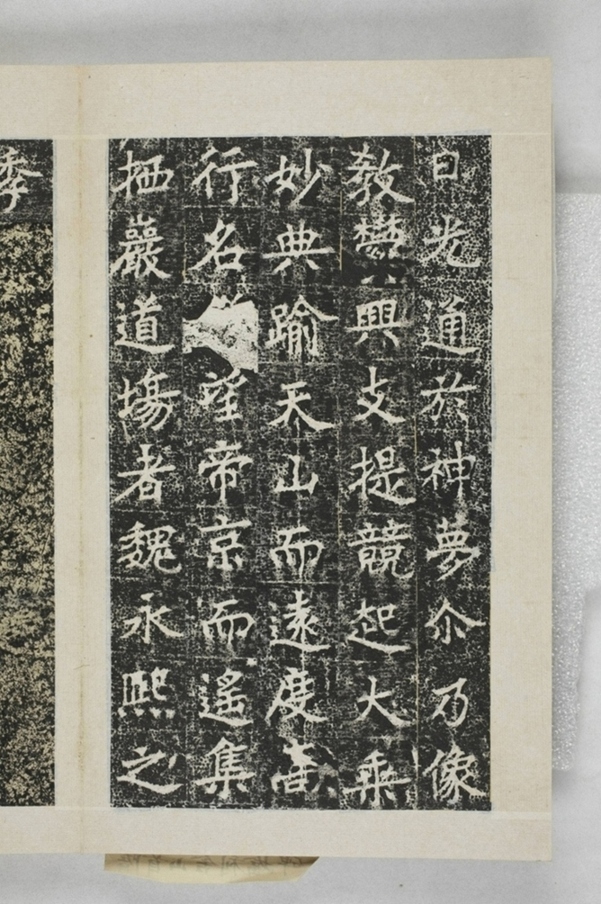 日光通於神夢尒乃像
教欝興支提競起大乘
妙典踰天山而遠度
行名望帝京而遙集
栖巖道場者魏永熙之
季